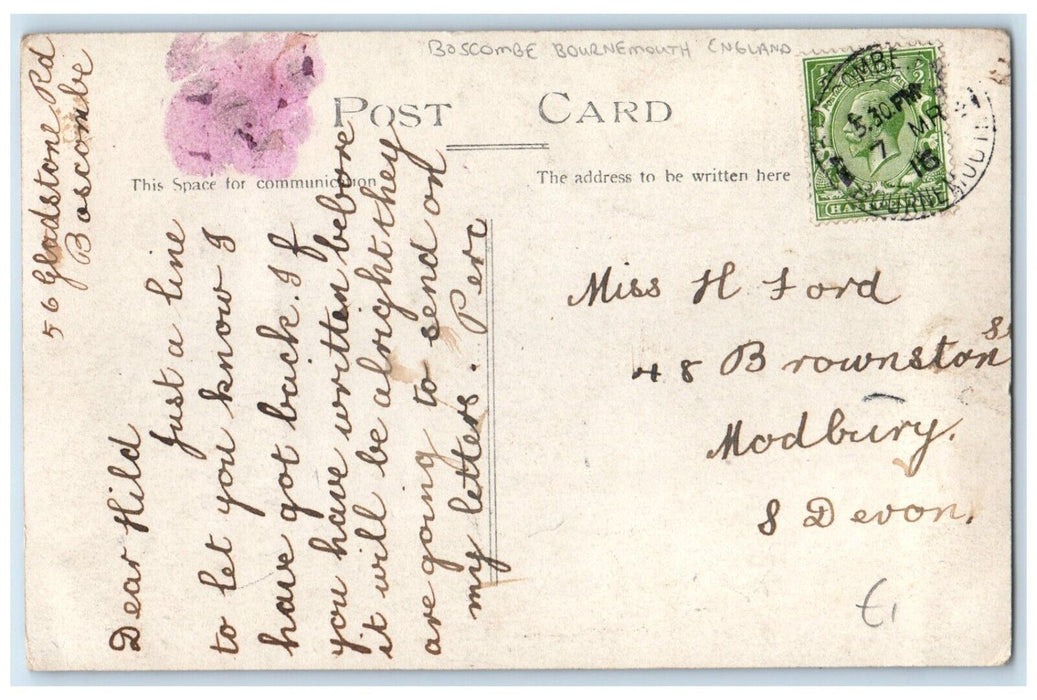 BOSCOMBE BOURNEMOUTH ENGLAND
POST CARD
This Space for communication
The address to be written here
56 Gladstone Rd
Boscombe
Dear Hild
Just a line
to let you know I
have got back. If
you have written before
it will be alright they
are going to send on
my letters. Perc
Miss H Ford
48 Brownston St
Modbury.
S Devon.
£1
BOSCOMBE
5.30 PM
7 MR
16
BOURNEMOUTH
HALF